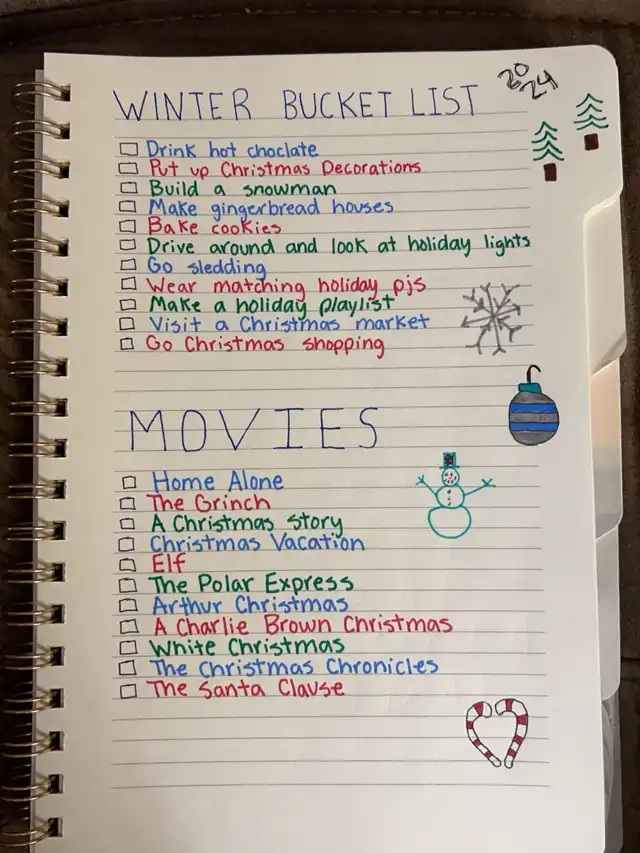 WINTER BUCKET LIST
2024
Drink hot choclate
Put up Christmas Decorations
Build a snowman
Make gingerbread houses
Bake cookies
Drive around and look at holiday lights
Go sledding
Wear matching holiday pjs
Make a holiday playlist
Visit a Christmas market
Go Christmas shopping
MOVIES
Home Alone
The Grinch
A Christmas Story
Christmas Vacation
Elf
The Polar Express
Arthur Christmas
A Charlie Brown Christmas
White Christmas
The Christmas Chronicles
The Santa Clause